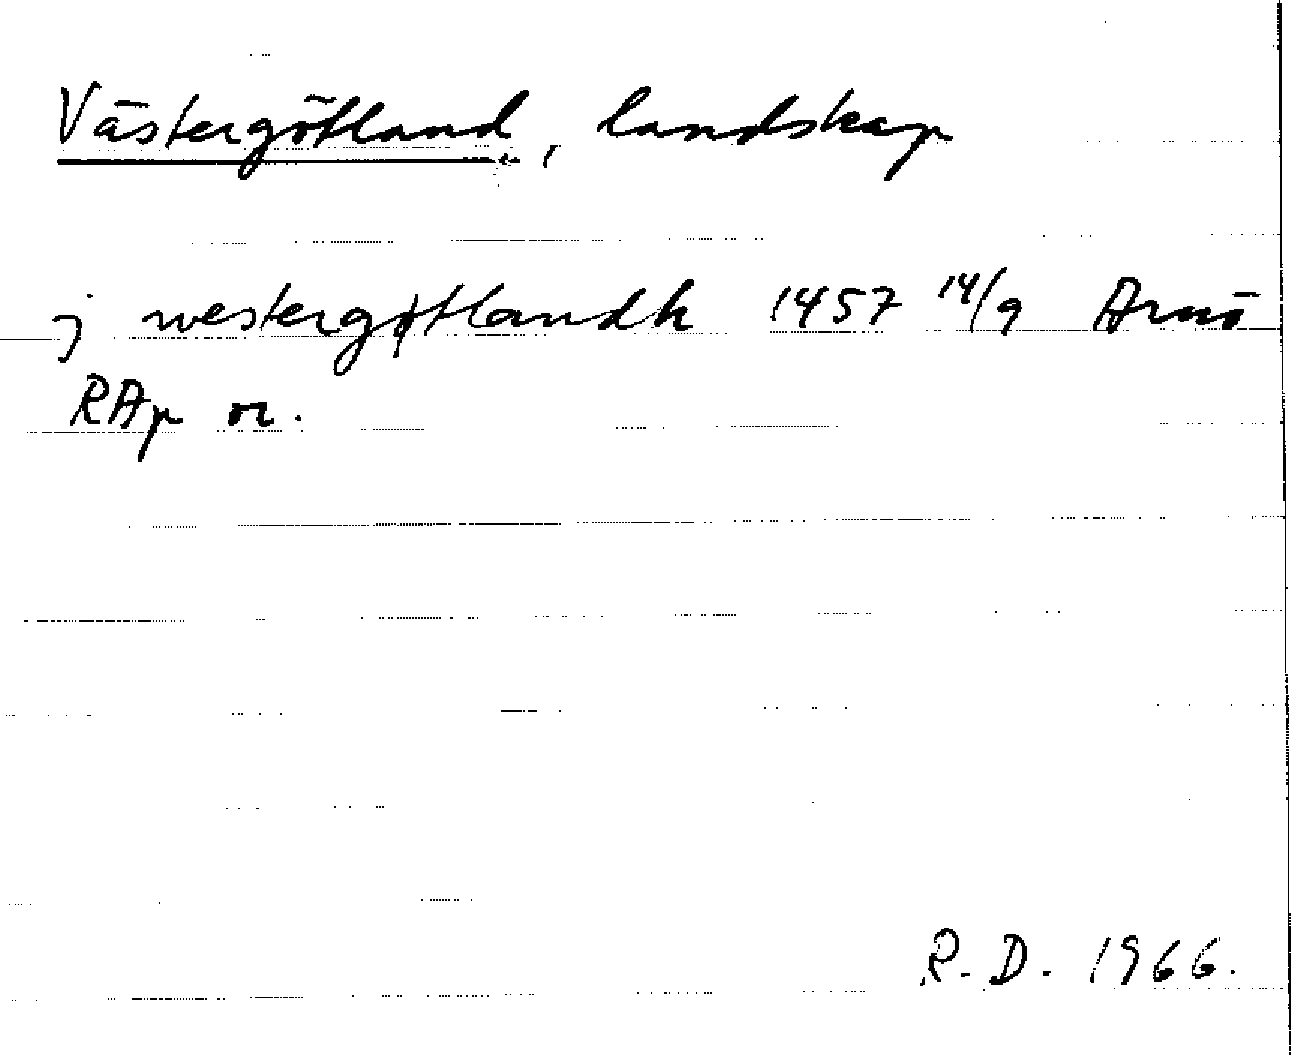 Västergötland, landskap
j westergøtlandh 1457 14/9 Arnö
RAp or.
R.D. 1966.